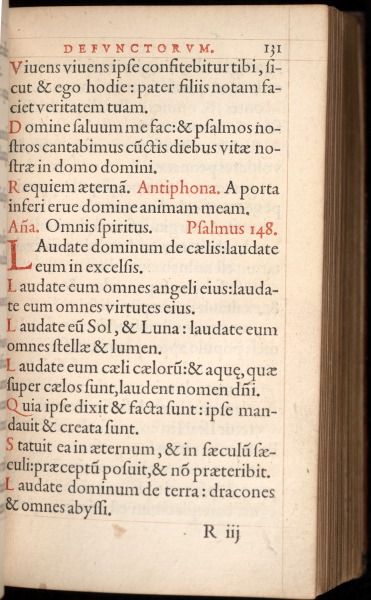 DEFVNCTORVM. 131
Viuens viuens ipſe confitebitur tibi, ſi-
cut & ego hodie: pater filiis notam fa-
ciet veritatem tuam.
Domine ſaluum me fac:& pſalmos no-
ſtros cantabimus cũctis diebus vitæ no-
ſtræ in domo domini.
Requiem æternã. Antiphona. A porta
inferi erue domine animam meam.
Aña. Omnis ſpiritus. Pſalmus 148.
LAudate dominum de cælis:laudate
eum in excelſis.
Laudate eum omnes angeli eius:lauda-
te eum omnes virtutes eius.
Laudate eũ Sol, & Luna: laudate eum
omnes ſtellæ & lumen.
Laudate eum cæli cælorũ:& aquę, quæ
ſuper cælos ſunt,laudent nomen dñi.
Quia ipſe dixit & facta ſunt: ipſe man-
dauit & creata ſunt.
Statuit ea in æternum, & in ſæculũ ſæ-
culi:præceptũ poſuit,& nõ præteribit.
Laudate dominum de terra: dracones
& omnes abyſſi.
R iij